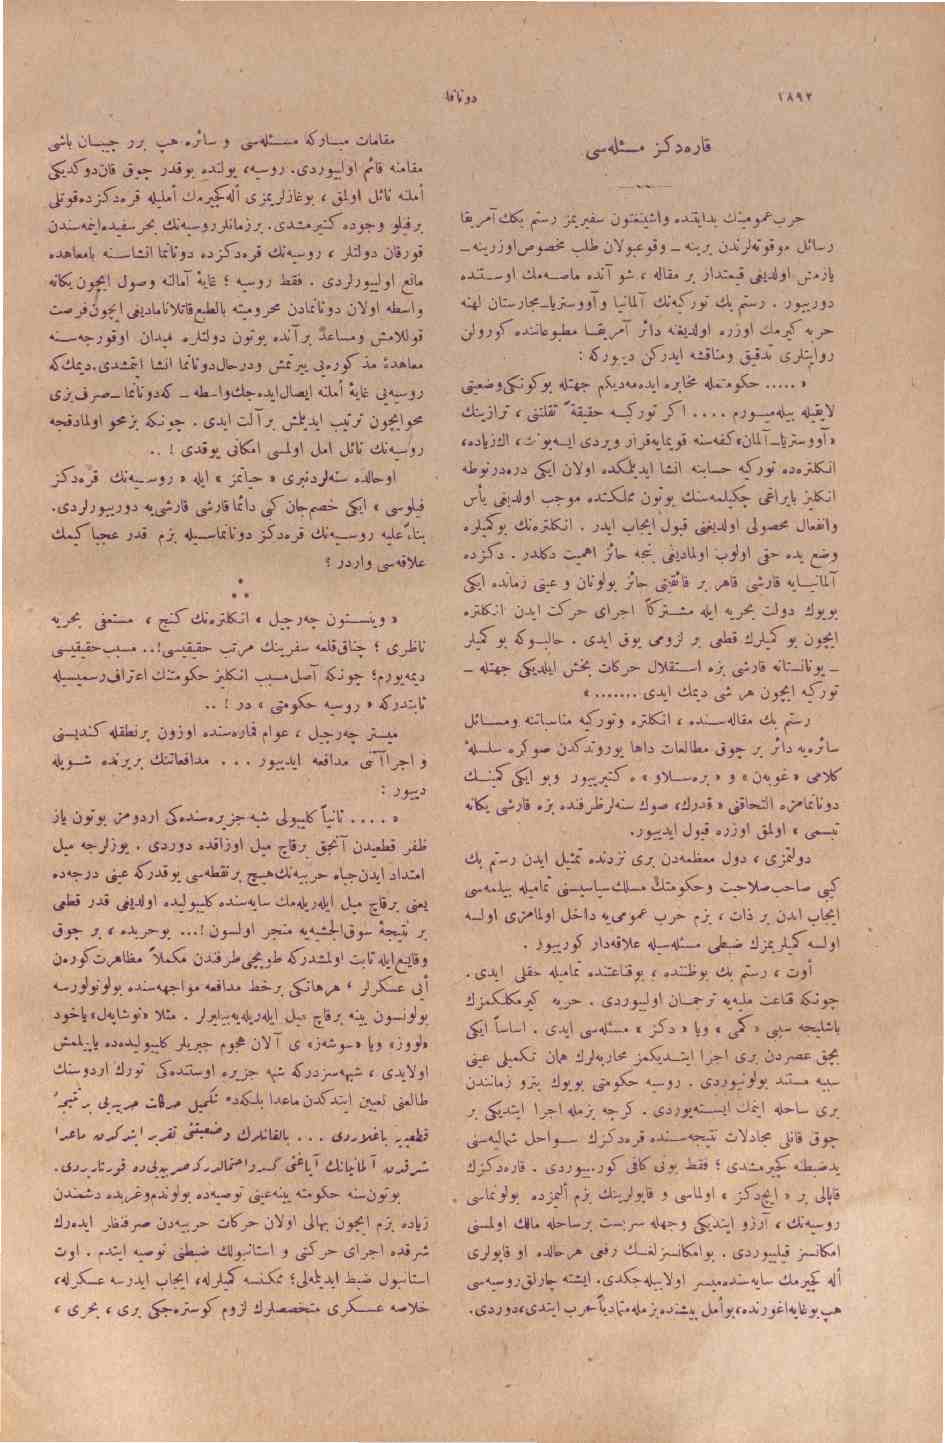 ١٨٩٢
دونانما
قاره‌دكز مسئله‌سی
حرب عمومینك بدایتنده واشینغتون سفیریمز رستم بكك آمریقا
رسائل موقوته‌لرندن برینه ــ وقوعبولان طلب مخصوص اوزرینه ــ
یازمش اولدیغی قیمتدار بر مقاله ، شو آنده ماصه‌مك اوستنده
دورییور . رستم بك توركیه‌نك آلمانیا وآووستریا ــ مجارستان لهنه
حربه كیرمك اوزره اولدیغنه دائر آمریقا مطبوعاتنده كورولن
روایتلری تدقیق ومناقشه ایدركن دییوركه :
« ..... حكومتمله مخابره ایده‌مه‌دیكم جهتله بوكونكی وضعیتی
لایقیله بیله‌مییورم .... اكر توركیه حقیقةً ثقلتنی ، ترازینك
«آووستریا ــ آلمان» كفه‌سنه قویمایه قرار ویردی ایسه بونك، اك زیاده،
انكلتره‌ده توركیه حسابنه انشا ایدیلمكده اولان ایكی دره‌دنوطه
انكلیز بایراغی چكیلمه‌سنك بوتون مملكتده موجب اولدیغی یأس
وانفعال محصولی اولدیغنی قبول ایجاب ایدر . انكلتره‌نك بوكمیلره
وضع یده حقی اولوب اولمادیغی بنجه حائز اهمیت دكلدر . دكزده
آلمانیایه قارشی قاهر بر فائقیتی حائز بولونان و عینی زمانده ایكی
بویوك دولت بحریه ایله مشتركاً اجرای حركت ایدن انكلتره
ایچون بو كمیلرك قطعی بر لزومی یوق ایدی . حالبوكه بو كمیلر
ــ یونانستانه قارشی بزه استقلال حركات بخش ایلدیكی جهتله ــ
توركیه ایچون هر شی دیمك ایدی ....... »
رستم بك مقاله‌سنده ، انكلتره وتوركیه مناسباتنه ومسائل
سائره‌یه دائر بر چوق مطالعات داها یوروتدكدن صوكره سلسلهٔ
كلامی «غوبه‌ن» و «بره‌سلاو» ه كتیرییور وبو ایكی كمینك
دونانمامزه التحاقنی « قدرك، صوك سنه‌لر ظرفنده بزه قارشی یكانه
تبسمی » اولمق اوزره قبول ایدییور.
دولتمزی ، دول معظمه‌دن بری نزدنده تمثیل ایدن رستم بك
كیبی صاحب صلاحیت وحكومتنك مسلك سیاسیسنی تمامیله بیلمه‌سی
ایجاب ایدن بر ذات ، بزم حرب عمومی‌یه داخل اولمامزی اولسه
اولسه كمیلریمزك ضبطی مسئله‌سیله علاقه‌دار كورییور .
أوت ، رستم بك بوظننده ، بوقناعتنده تمامیله حقلی ایدی .
چونكه قناعت ملیه‌یه ترجمان اولییوردی . حربه كیرمكلكمزك
باشلیجه سببی «كمی» ویا « دكز » مسئله‌سی ایدی . اساساً ایكی
بچق عصردن بری اجرا ایتدیكمز محاربه‌لرك همان تكمیلی عینی
سببه مستند بولونیوردی . روسیه حكومتی بویوك پترو زمانندن
بری ساحله اینمك ایسته‌یوردی . كرچه بزمله اجرا ایتدیكی بر
چوق قانلی مجادلات نتیجه‌سنده قره‌دكزك سواحل شمالیه‌سنی
یدضبطنه كچیرمشدی ؛ فقط بونی كافی كورمییوردی . قاره‌دكزك
قاپالی بر « ایچ‌دكز » اولماسی و قاپولرینك بزم ألیمزده بولونماسی
روسیه‌نك ، آرزو ایتدیكی وجهله سربست برساحله مالك اولمسنی
امكانسز قیلییوردی . بوامكانسزلغك رفعی هرحالده او قاپولری
أله كچیرمك سایه‌سنده میسر اولابیله‌جكدی. ایشته چارلق روسیه‌سی
هپ بوغایه اغورنده، بوأمل پیشنده بزمله متمادیاً حرب ایتدی، دوردی.
مقامات مباركه مسئله‌سی و سائره هپ برر چیبان باشی
مقامنه قائم اولییوردی. روسیه، یولنده بوقدر چوق قان دوكدیكی
أملنه نائل اولمق ، بوغازلریمزی أله كچیرمك أملیله قره‌دكزده قوتلی
برفیلو وجوده كتیرمشدی. برزمانلر روسیه‌نك بحر سفیده اینمه‌سندن
قورقان دولتلر ، روسیه‌نك قره‌دكزده دونانما انشاسنه بامعاهده
مانع اولییورلردی . فقط روسیه ؛ غایهٔ آمالنه وصول ایچون یكانه
واسطه اولان دونانمادن محرومیته بالطبع قاتلانامادیغی ایچون فرصت
قوللامش ومساعد برآنده بوتون دولتلره میدان اوقورجه‌سنه
معاهدهٔ مذكوره‌یی ییرتمش ودرحال دونانما انشا ایتمشدی. دیمك كه
روسیه‌یی غایهٔ أملنه ایصال ایده‌جك واسطه ــ كه دونانما ــ صرف بزی
محو ایچون ترتیب ایدیلمش برآلت ایدی . چونكه بزمحو اولمادقجه
روسیه‌نك نائل امل اولمسی امكانی یوقدی ! ..
اوحالده سنه‌لردنبری « حیاتمز » ایله « روسیه‌نك قره‌دكز
فیلوسی » ایكی خصم جان كبی دائما قارشی قارشی‌یه دورییورلردی.
بناءً علیه روسیه‌نك قره‌دكز دونانماسیله بزم قدر عجبا كیمك
علاقه‌سی واردر ؟
*
* *
« وینستون چه‌رچیل » انكلتره‌نك كنج ، مستعفی بحریه
ناظری ؛ چناق قلعه سفرینك مرتب حقیقیسی!.. مسبب حقیقیسی
دیمه‌یورم؛ چونكه آصل مسبب انكلیز حكومتنك اعتراف رسمیسیله
ثابتدركه « روسیه حكومتی » در ! ..
میستر چه‌رچیل ، عوام قماره‌سنده اوزون برنطقله كندیسنی
و اجراآتنی مدافعه ایدییور ... مدافعاتنك بریرنده شویله
دییور :
« .... ثانیاً كلیبولی شبه جزیره‌سنده‌كی اردومز بوتون یاز
ظفر قطعیدن آنجق برقاچ میل اوزاقده دوردی . یوزلرجه میل
امتداد ایدن جباه حربیه‌نك هیچ برنقطه‌سی یوقدركه عینی درجه‌ده
یعنی برقاچ میل ایلریله‌مك سایه‌سنده كلیبولیده اولدیغی قدر قطعی
بر نتیجهٔ سوق‌الجیشیه‌یه منجر اولسون !... بوحربده ، بر چوق
وقایع ایله ثابت اولمشدركه طوپچی طرفندن مكملاً مظاهرت كوره‌ن
أیی عسكرلر ، هرهانكی برخط مدافعه مواجهه‌سنده بولونولورسه
بولونسون یینه برقاچ میل ایلریله‌یه‌بیلیرلر . مثلا «نوشاپه‌ل» یاخود
«لووز» ویا «سوشه‌ز» ی آلان هجوم جبریلر كلیبولیده‌ده یاپیلمش
اولایدی ، شبهه‌سزدركه شبه جزیره اوستنده‌كی تورك اردوسنك
طالعنی تعیین ایتدكدن ماعدا بلكه‌ده تكمیل حركات حربیه‌یی بر نتیجهٔ
قطعییه باغلاردی ... بالقانلرك وضعیتنی تقریر ایتدكدن ماعدا
شرقدن آلمانیانك آیاغنی كسر واحتمالدركه صربیه‌یی‌ده قورتاریردی.
بوتون سنه حكومته یینه عینی توصیه‌ده بولوندم وغربده دشمندن
زیاده بزم ایچون بهالی اولان حركات حربیه‌دن صرفنظر ایده‌رك
شرقده اجرای حركتی و استانبولك ضبطنی توصیه ایتدم . اوت
استانبول ضبط ایدیلمه‌لی؛ ممكنسه كمیلرله، ایجاب ایدرسه عسكرله،
خلاصه عسكری متخصصلرك لزوم كوستره‌جكی بری ، بحری ،